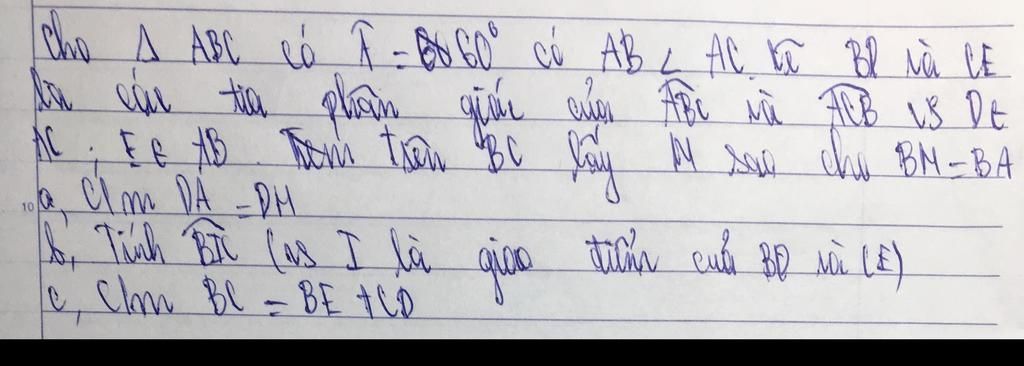 Cho Δ ABC có Â = 60° có AB < AC. kẻ BD và CE
là các tia phân giác của ABC và ACB vs D∈
AC ; E ∈ AB. trên BC lấy M sao cho BM = BA
a, C/m DA = DM
b, Tính BIC (vs I là giao điểm của BD và CE)
c, C/m BC = BE + CD